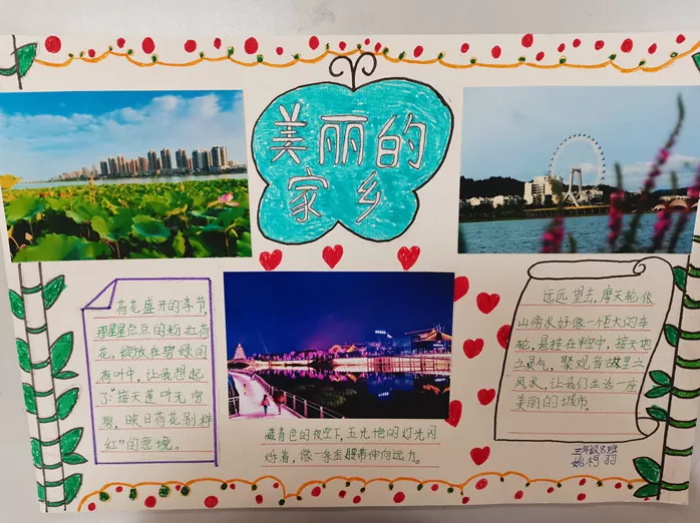 美丽的
家乡
荷花盛开的季节,
那星星点点的粉红荷
花,绽放在碧绿的
荷叶中,让我想起
了“接天莲叶无穷
碧,映日荷花别样
红”的意境。
藏青色的夜空下,五光十色的灯光闪
烁着,像一条金腰带伸向远方。
远远望去,摩天轮依
山傍水好像一个巨大的车
轮,悬挂在半空中,接天地
之灵气,聚观音故里之
风水,让我们生活一座
美丽的城市。
三年级8班
姚